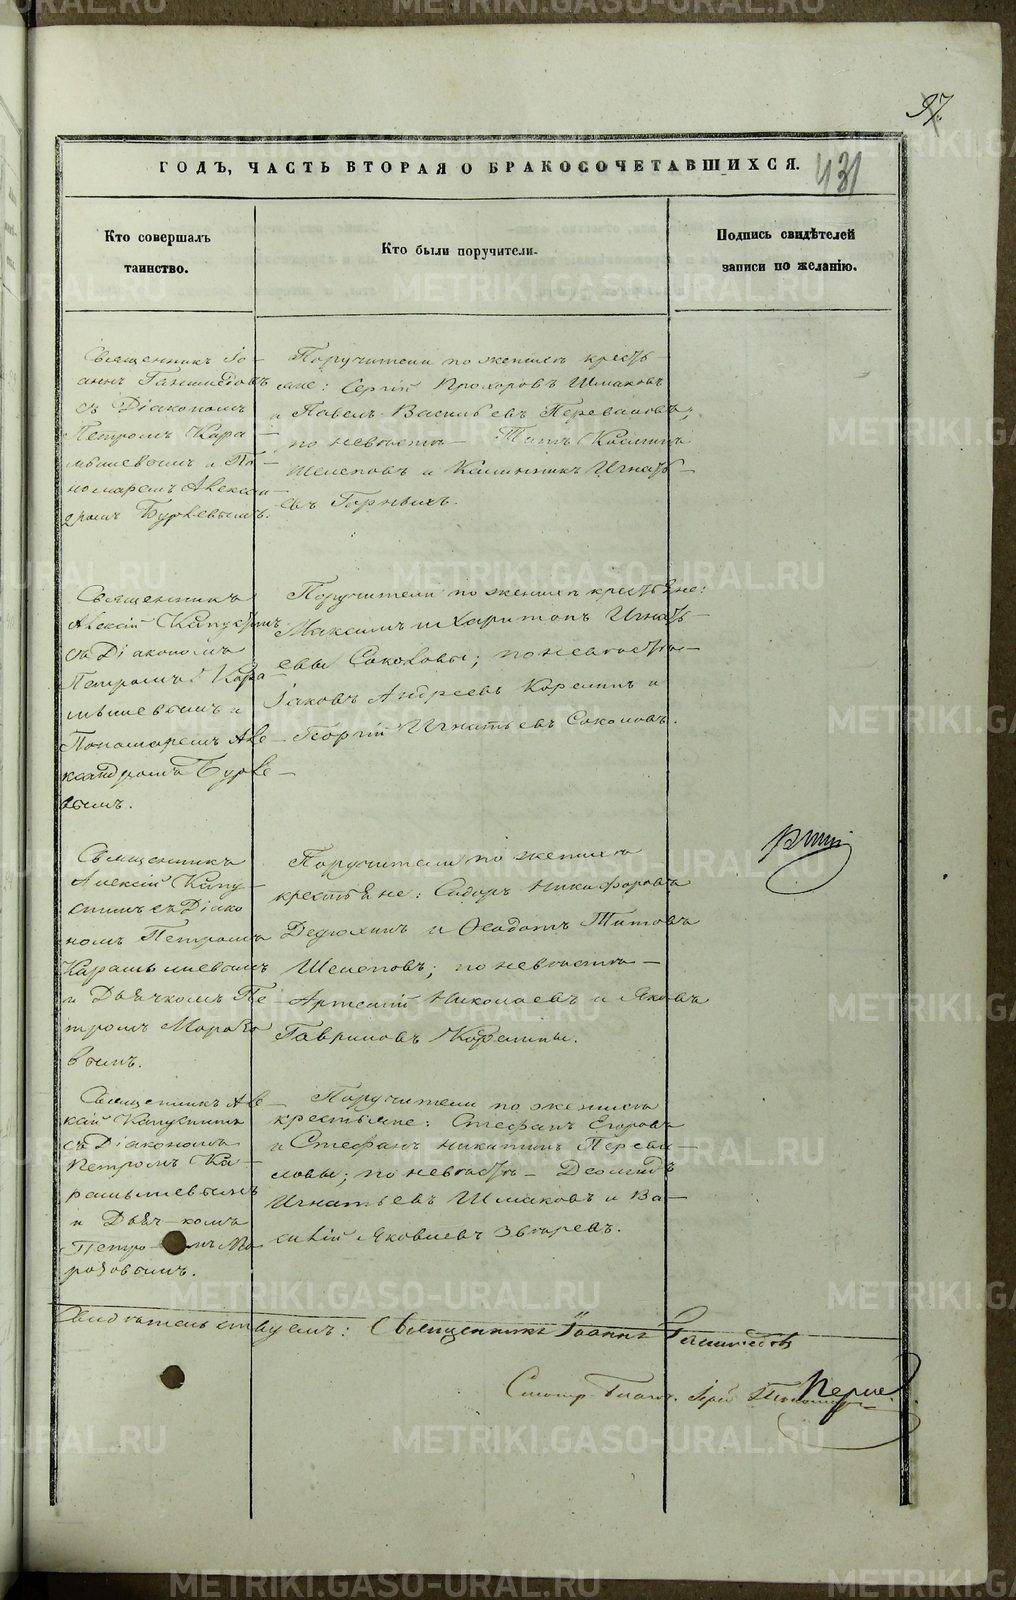 97
431
ГОДЪ, ЧАСТЬ ВТОРАЯ О БРАКОСОЧЕТАВШИХСЯ.
Кто совершалъ
таинство.
Кто были поручители.
Подпись свидѣтелей
записи по желанію.
Священникъ Іо-
аннъ
съ Діакономъ
Петромъ Кара-
мышевымъ и По-
номаремъ Алексан-
дромъ
Поручители по женихѣ кресть-
яне: Сергій Прохоровъ Шмаковъ
и Павелъ Васильевъ Переваловъ;
по невѣстѣ – Титъ
Шелеповъ и Калинникъ Игнать-
евъ
Священникъ
Алексій
съ Діакономъ
Петромъ Кара-
мышевымъ и
Пономаремъ Але-
ксандромъ
Поручители по женихѣ крестьяне:
Максимъ и Харитонъ Игнать-
евы Соколовы; по невѣстѣ –
Іаковъ Андреевъ Корелинъ и
Георгій Игнатьевъ Соколовъ.
Священникъ
Алексій Капу-
стинъ съ Діако
номъ Петромъ
Карамышевымъ
и Дьячкомъ Пе
тромъ Моро-
вымъ.
Поручители по женихѣ
крестьяне: Сидоръ Никифоровъ
Дедюхинъ и Ѳеодотъ Титовъ
Шелеповъ; по невѣстѣ –
Артемій Николаевъ и Яковъ
Гавриловъ Корелины.
Священникъ Але-
ксій Капустинъ
съ Діакономъ
Петромъ Ка-
рамышевымъ
и Дьяч-комъ
Петро-мъ Мо
розовымъ.
Поручители по женихѣ
крестьяне: Стефанъ Егоровъ
и Стефанъ Никитинъ Перева-
ловы; по невѣстѣ –
Игнатьевъ Шмаковъ и Ва-
силій Яковлевъ Звѣревъ.
Свидѣтельствуемъ: Священникъ Іоаннъ
METRIKI.GASO-URAL.RU